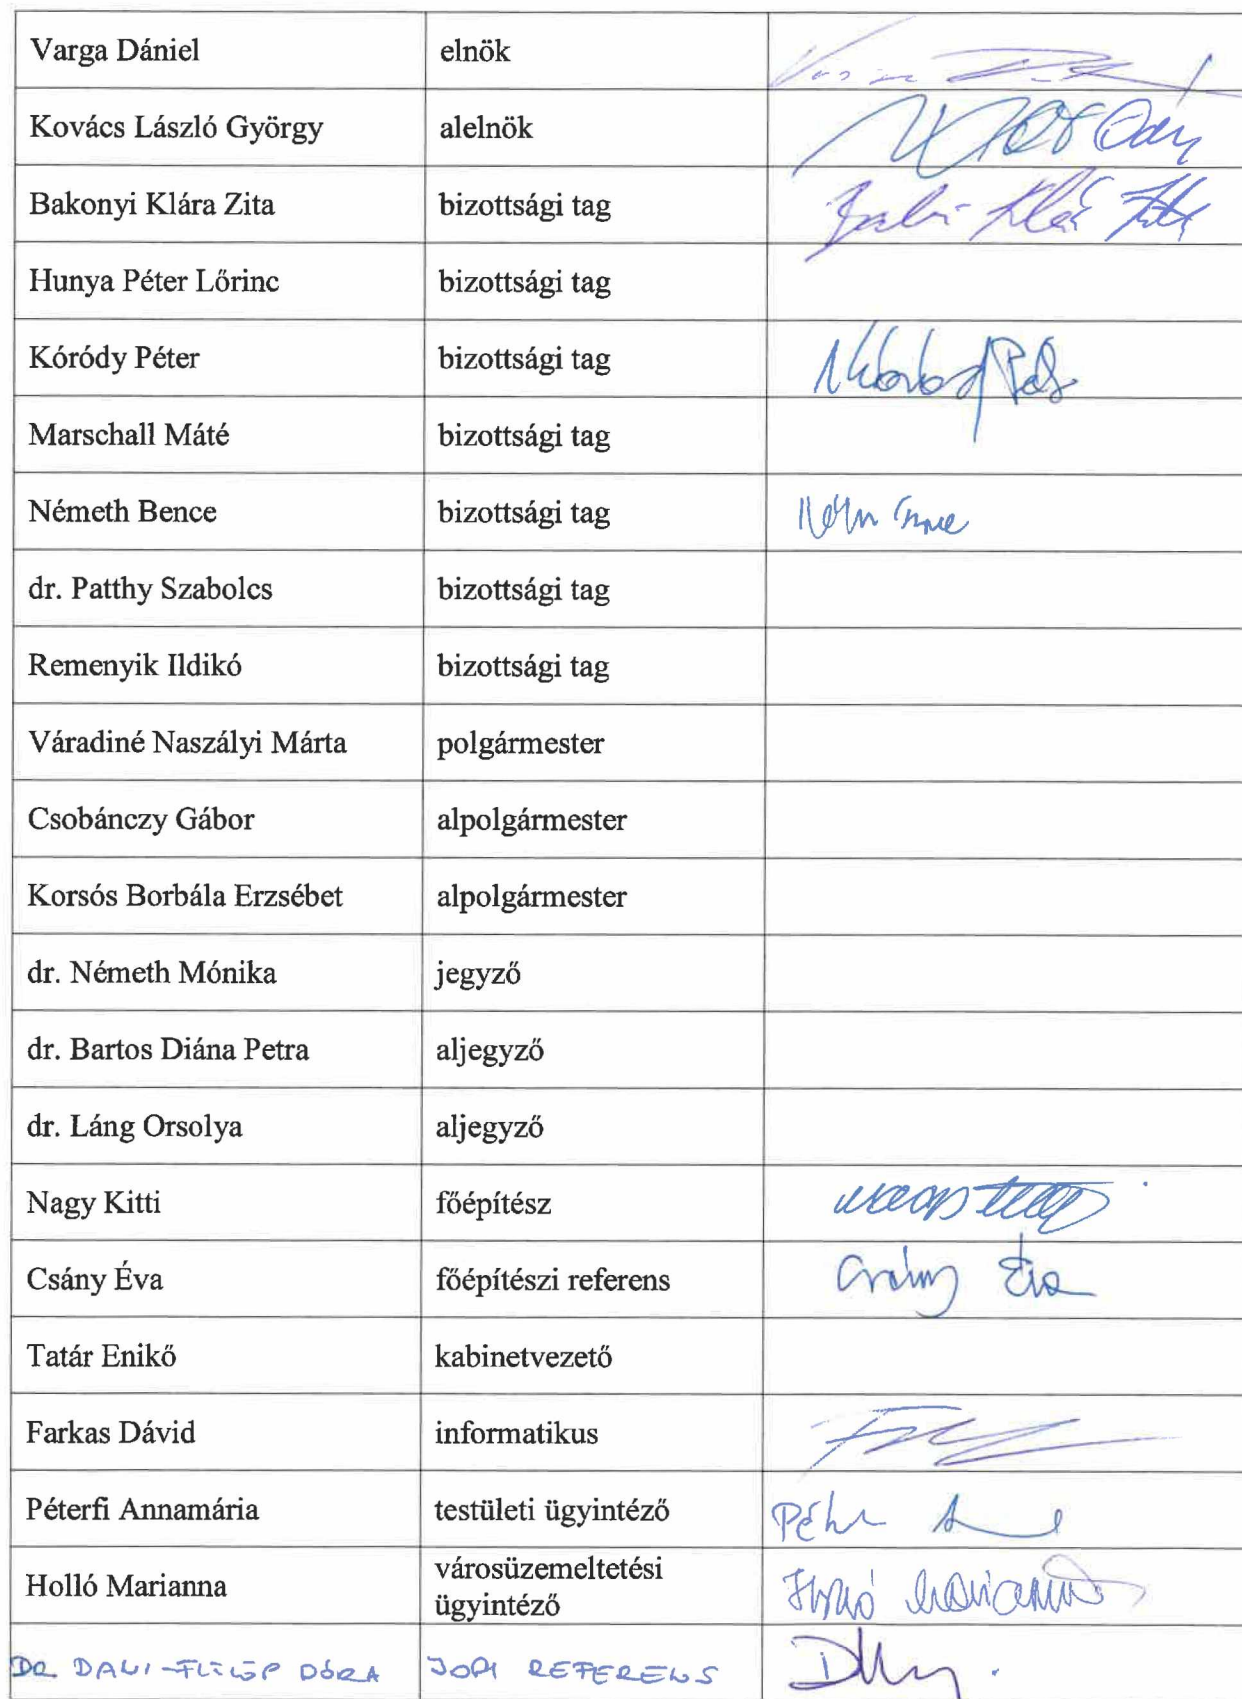 Varga Dániel elnök
Kovács László György alelnök
Bakonyi Klára Zita bizottsági tag
Hunya Péter Lőrinc bizottsági tag
Kóródy Péter bizottsági tag
Marschall Máté bizottsági tag
Németh Bence bizottsági tag
dr. Patthy Szabolcs bizottsági tag
Remenyik Ildikó bizottsági tag
Váradiné Naszályi Márta polgármester
Csobánczy Gábor alpolgármester
Korsós Borbála Erzsébet alpolgármester
dr. Németh Mónika jegyző
dr. Bartos Diána Petra aljegyző
dr. Láng Orsolya aljegyző
Nagy Kitti főépítész
Csány Éva főépítészi referens Csány Éva
Tatár Enikő kabinetvezető
Farkas Dávid informatikus
Péterfi Annamária testületi ügyintéző
városüzemeltetési
Holló Marianna Holló Marianna
ügyintéző
DR. DÓRA JOGI REFERENS